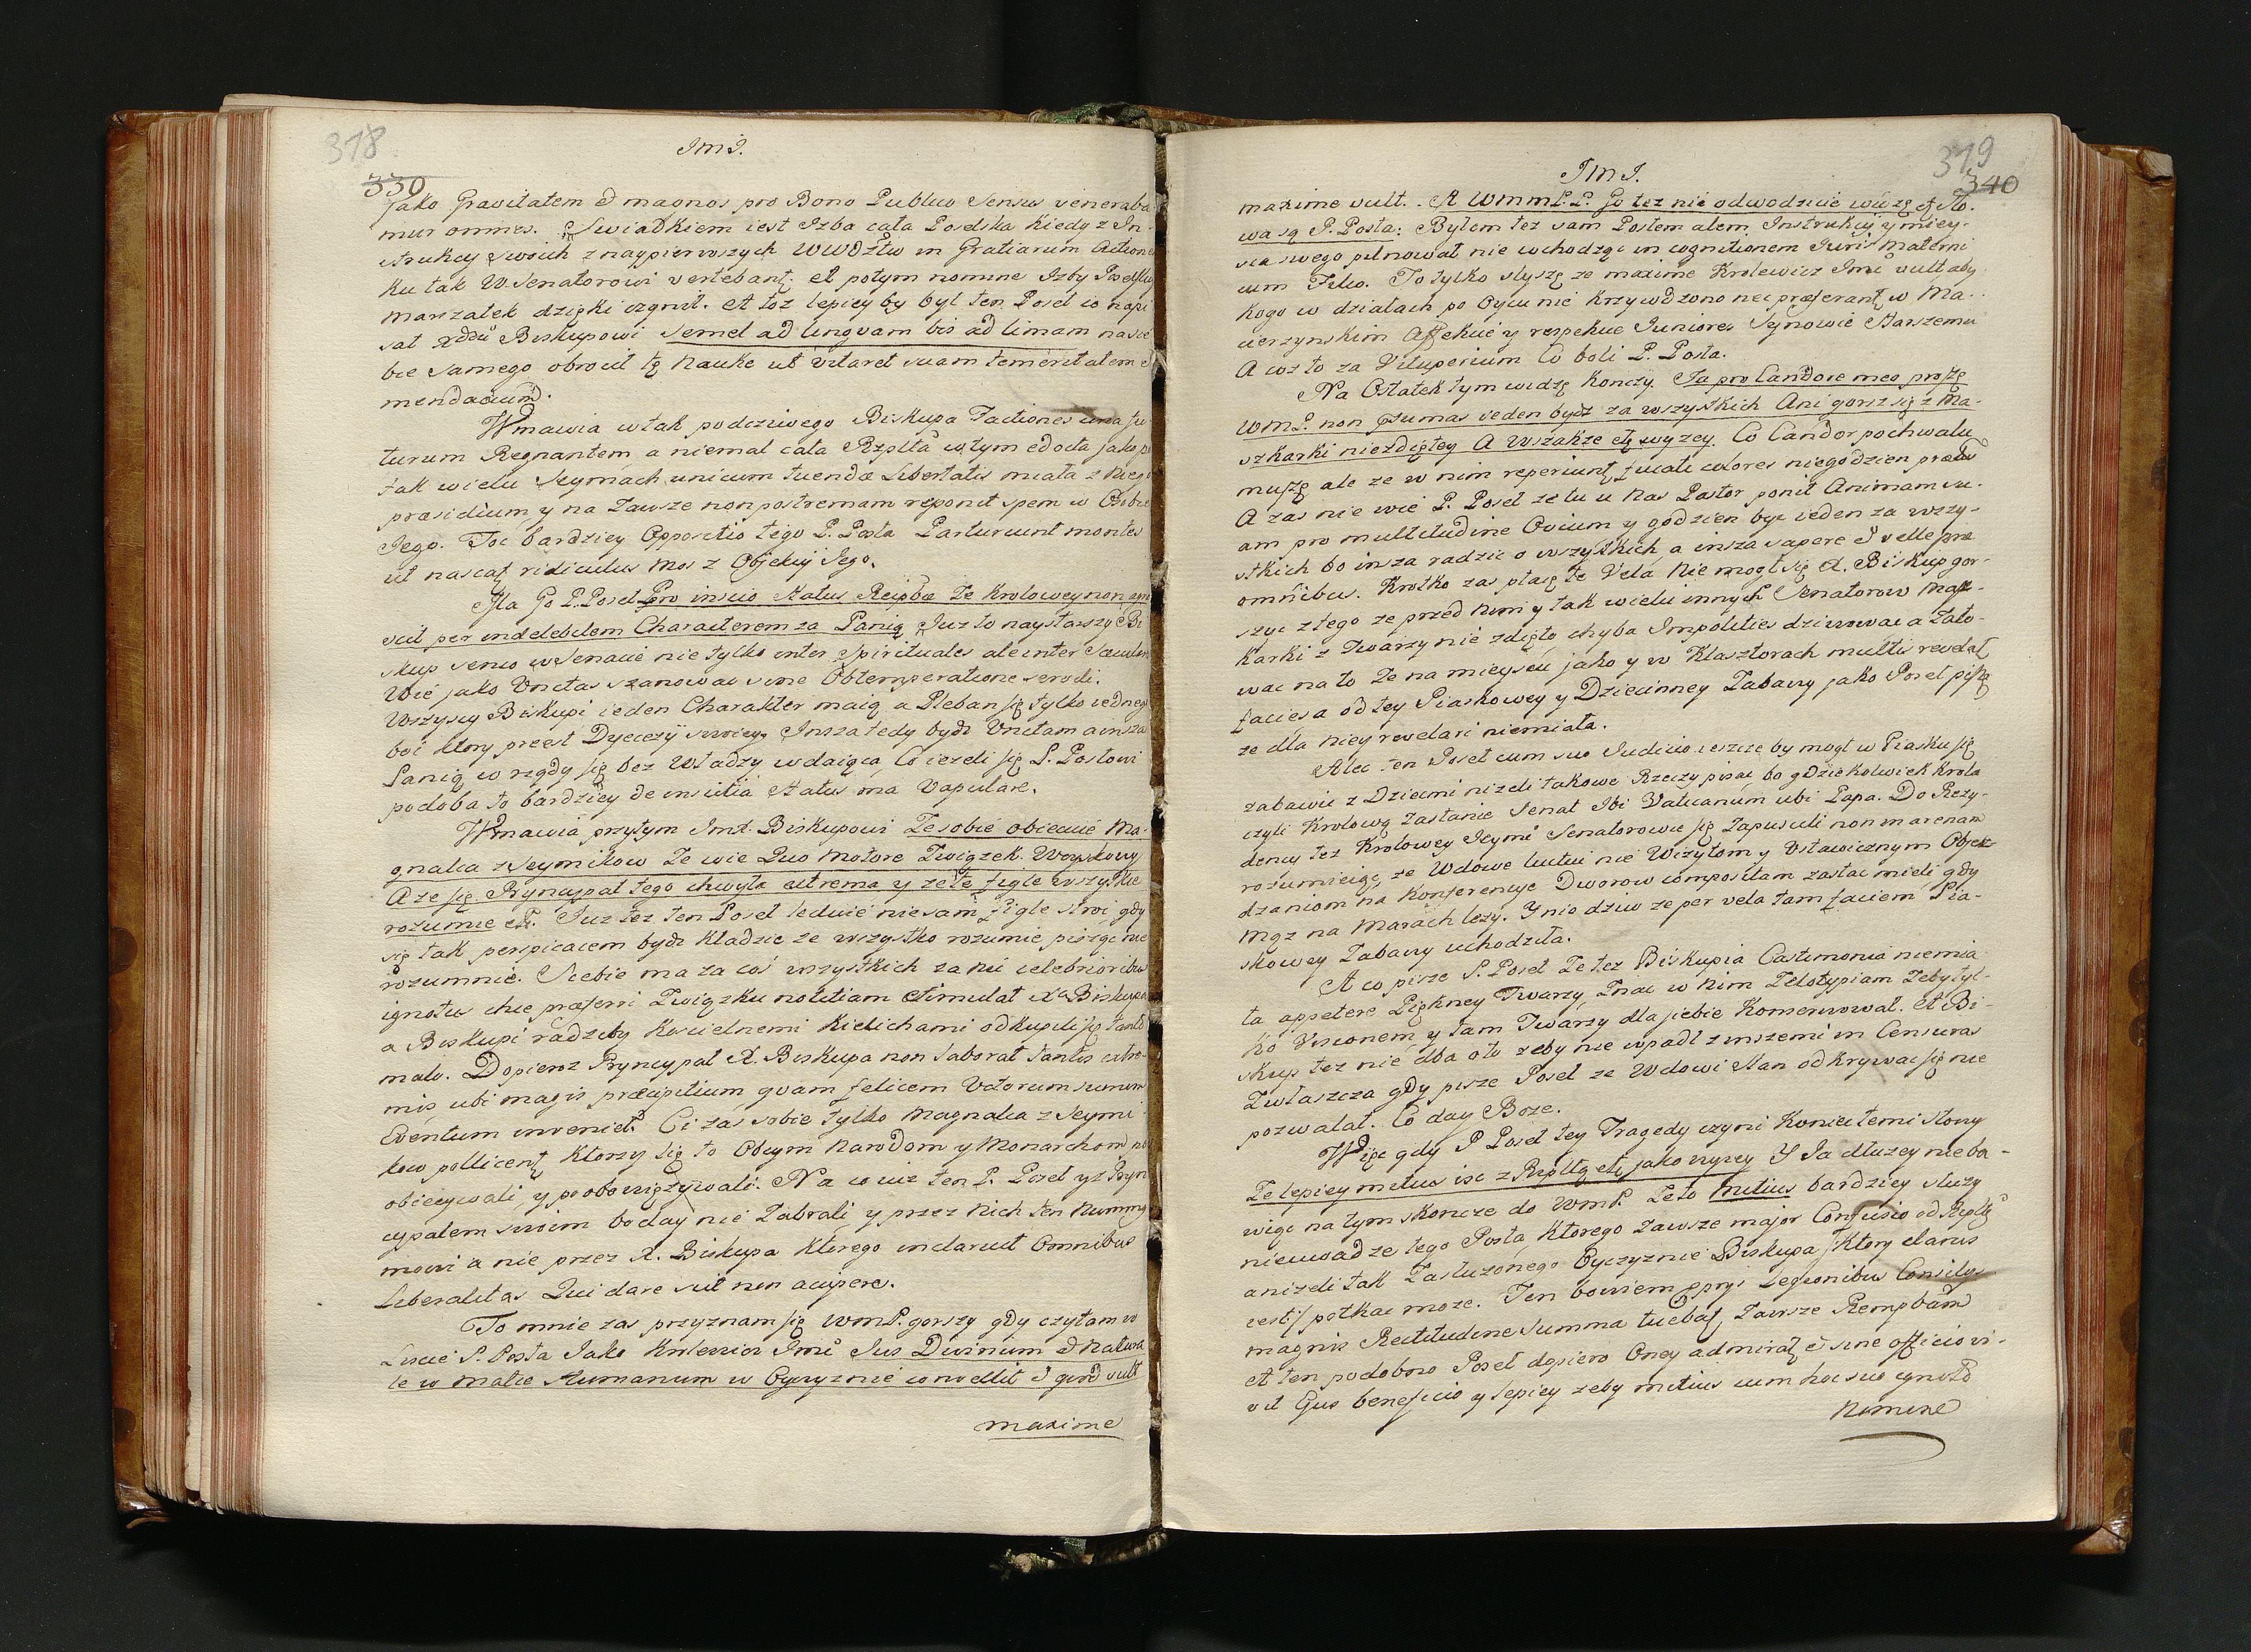 378
339
JmJ.
jako Gravitatem et magnos pro Bono Publico Sensus veneraba
mur omnes. Swiadkiem iest Izba cała Poselska kiedy z In-
strukcij swoich z naypierwszych WWdztw in Gratiarum Actione
ku tak W. Senatorowi vertebant, et potym nomine Izby Poselskiey
Marszałek dzięki czynił. A toż lepiey by był ten Poseł co napi
sał Xdzu Biskupowi semel ad linguam bis ad limam na sie
bie samego obrocił tę Naukę ut vitaret suam temeritatem et
mendacium.
Wmawia w tak podcziwego Biskupa Factiones una fu
turum Regnantem, a niemal cała Rzplta w tym edocta jako po
tak wielu Seymach unicum tuendæ Libertatis miała z Niego
præsidium y na Zawsze non postremam reponit spem w Osobie
Jego. Toć bardziey Oppositio tego P. Posła Parturiunt montes
ut nascat, ridiculus mos z Objekcij Jego.
Ma Go P. Poseł pro inscio Status Reipbcæ Ze Krolowey non agno
scit per indelebilem Characterem za Panią. Juz to naystarszy Bi
skup senio w Senacie nie tylko inter Spirituales ale inter Sæculares
Wie jako Unctas szanować sine Obtemperatione servili.
Wszyscy Biskupi ieden Charakter maią a Pleban się tylko iednego
boi ktory præest Dyecezij swoiey. Insza tedy bydz Unctam a insza
Panią w rzędy się bez Władzy wdaiąca, Co iezeli się P. Posłowi
podoba to bardziey de inscitia Status ma Vapulare.
Wmawia przytym Jmć Biskupowi Ze sobie obiecuie Ma-
gnalia z Seymikow Ze wie Quo Motore Związek Woyskowy
A ze się Pryncypał tego chwyta extrema y że te figle wszystkie
rozumie etc. Juz tez ten Poseł ledwie nie sam Figle stroi gdy
się tak perspicacem bydz kładzie ze wszystko rozumie pisząc nie
rozumnie. Siebie ma za coś wszystkich za nic celebrioribus
ignotus chce præferri Związku notitiam stimulat Xa Biskupa
a Biskupi radziby Koscielnemi Kielichami odkupili się tanto
malo. Dopieroz Pryncypał X. Biskupa non laborat tantis extre-
mis ubi magis præcipitium quam felicem Votorum suorum
Eventum inveniet. Ci zaś sobie tylko Magnalia z Seymi-
kow pollicent, Ktorzy się to Obcym Narodom y Monarchom
obiecywali, y poobowiązywali. Na co iuz ten P. Poseł y z Pryn
cypałem swoim boday nie Zabrali y przez Nich ten Nummus
mowi a nie przez X. Biskupa Ktorego inclaruit Omnibus
Liberalitas Qui dare scit non accipere.
To mnie zas przyznam się WmP. gorszy gdy czytam w
Liscie P. Posła Jako Krolewicz Jmć Jus Divinum et Natura
le w Matce Humanum w Oyczyznie convellit et quod vult
maxime
379
340
JMJ.
maxime vult. A WmmP.P. Go tez nie odwodzicie widzę etc. Sło.
wa są P. Posła: Byłem tez sam Posłem alem Instrukcij y miey-
sca swego pilnował nie wchodząc in cognitionem Juris Materni
cum Filio. To tylko słyszę ze maxime Krolewicz Jmć vult aby
kogo w działach po Oycu nie krzywdzono nec præferant, w Ma-
cierzynskim Affekcie y respekcie Juniores Synowie Starszemu
A coz to za Vituperium Co boli P. Posła.
Na Ostatek tym widzę kończy. Ja pro Candore meo proszę
WmP. non sumas ieden bydz za wszystkich Ani gorsz się z Ma-
szkarki niezdiętey A wszakze etc. wyzey. Co Candor pochwalić
muszę ale ze w nim reperiunt, fucati colores niegodzien prawdy
A zas nie wie P. Poseł ze tu u Nas Pastor ponit Animam su-
am pro multitudine Ovium y godzien byc ieden za wszy-
stkich bo insza radzic o wszystkich, a insza sapere et velle præ
omnibus. Krotko zas płacę te Vela Nie mogł się X. Biskup gor-
szyc z tego ze przed Nim y tak wielu innych Senatorow Masz-
karki z Twarzy nie zdięto, chyba Impolities dziwowac a Zało-
wac na to Ze na mieyscu jako y w Klasztorach multis revelat,
facies a od tey Piaskowey y Dziecinney Zabawy jako Poseł pisze
ze dla niey revelari niemiała.
Alec ten Poseł cum suo Judicio ieszcze by mogł w Piasku się
zabawic z Dziecmi nizeli takowe Rzeczy pisac bo gdziekolwiek Krola
czyli Krolową Zastanie Senat Ibi Vaticanum ubi Papa. Do Rezy-
dencij tez Krolowey Jeymć Senatorowie się Zapuscili non in arenam
rozumieiąc ze Wdowę luctui nie Wizytom y Ustawicznym Objek-
dzaniom na Konferencye Dworow compositam zastac mieli gdy
Mąz na Marach lezy. Y nie dziw ze per vela tam faciem Pia-
skowey Zabawy uchodziła.
A co pisze P. Poseł Ze tez Biskupia Castimonia niemia
ła appetere Piękney Twarzy, Znac w Nim Zelotypiam Zeby tyl-
ko Visionem, y tam Twarzy dla siebie Konserwował. A Bi-
skup tez nie dba o to zeby nie wpadł z inszemi in Censuras
Zwłaszcza gdy pisze Poseł ze Wdowi Stan odkrywac się nie
pozwalał. Co day Boze.
Więc gdy P. Poseł tey Tragedy czyni Koniec temi słowy
Ze lepiey mitius isc z Rzpltą etc. jako wyzey Y Ja dłuzey nieba-
wiąc na tym skoncze do WmP. Ze to mitius bardziey słuzy
nieuwadze tego Posła, Ktorego zawsze major Confusio od Rzplty
anizeli tak Zasłuzonego Oyczyznie Biskupa /: Ktory clarus
iest :/ potkac moze. Ten bowiem Legionibus Consilys
magnis Rectitudine Summa tuebat, Zawsze Rempbcam
A ten podobno Poseł dopiero Oney admirat, et sine officio vi-
vit Ejus beneficio y lepiey zeby mitius cum hoc suo ignoto
Nomine